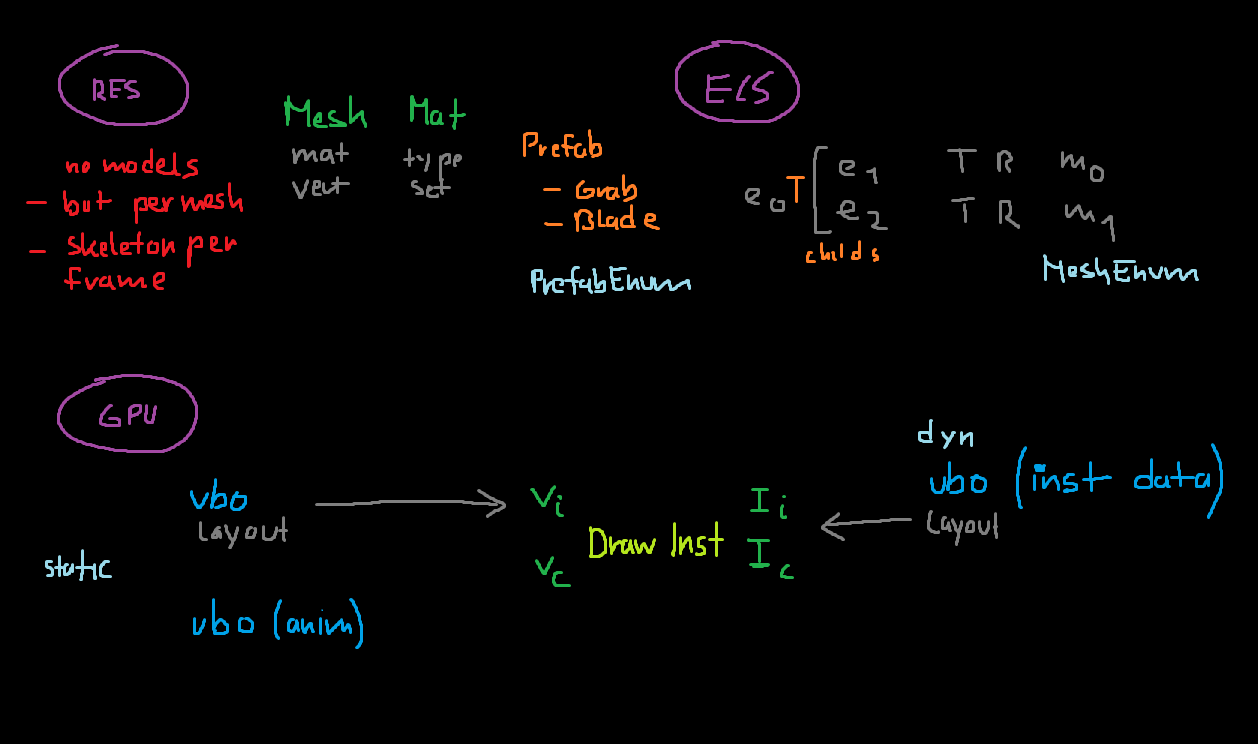 RES
no models
- but per mesh
- skeleton per
frame
Mesh
mat
vert
Mat
type
set
Prefab
- Grab
- Blade
PrefabEnum
ECS
e0 T [ e1 T R m0
e2 T R m1
childs
MeshEnum
GPU
static
vbo
Layout
vbo (anim)
Vi
Vc
Draw Inst
Ii
Ic
dyn
vbo (inst data)
Layout